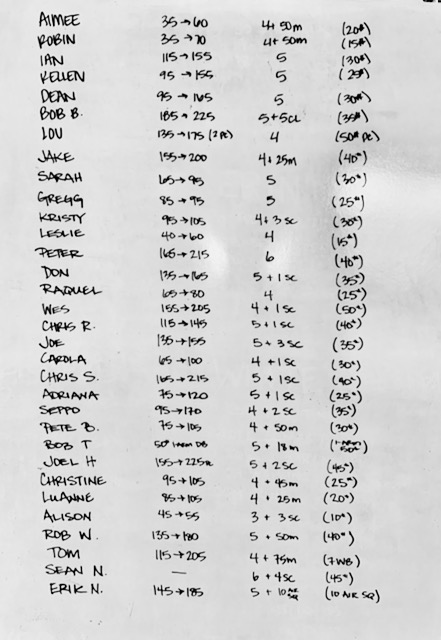 AIMEE 35→60 4+50m (20#)
ROBIN 35→70 4+50m (15#)
IAN 115→155 5 (30#)
KELLEN 95→155 5 (25#)
DEAN 95→165 5 (30#)
BOB B. 185→225 5+5CL (35#)
LOU 135→175 (2PC) 4 (50# PC)
JAKE 155→200 4+25m (40#)
SARAH 65→95 5 (30#)
GREGG 85→95 5 (25#)
KRISTY 95→105 4+3SC (30#)
LESLIE 40→60 4 (15#)
PETER 165→215 6 (40#)
DON 135→165 5+1SC (35#)
RAQUEL 65→80 4 (25#)
WES 155→205 4+1SC (50#)
CHRIS R. 115→145 5+1SC (40#)
JOE 135→155 5+3SC (35#)
CAROLA 65→100 4+1SC (30#)
CHRIS S. 165→215 5+1SC (40#)
ADRIANA 75→120 5+1SC (25#)
SEPPO 95→170 4+2SC (35#)
PETE B. 75→105 4+50m (30#)
BOB T 50# 1 ARM DB 5+18m (1 ARM 50#)
JOEL H 155→225 5+2SC (45#)
CHRISTINE 95→105 4+45m (25#)
LUANNE 85→105 4+25m (20#)
ALISON 45→55 3+3SC (10#)
ROB W. 135→180 5+50m (40#)
TOM 115→205 4+75m (7WB)
SEAN N. — 6+4SC (45#)
ERIK N. 145→185 5+10 AIR SQ (10 AIR SQ)